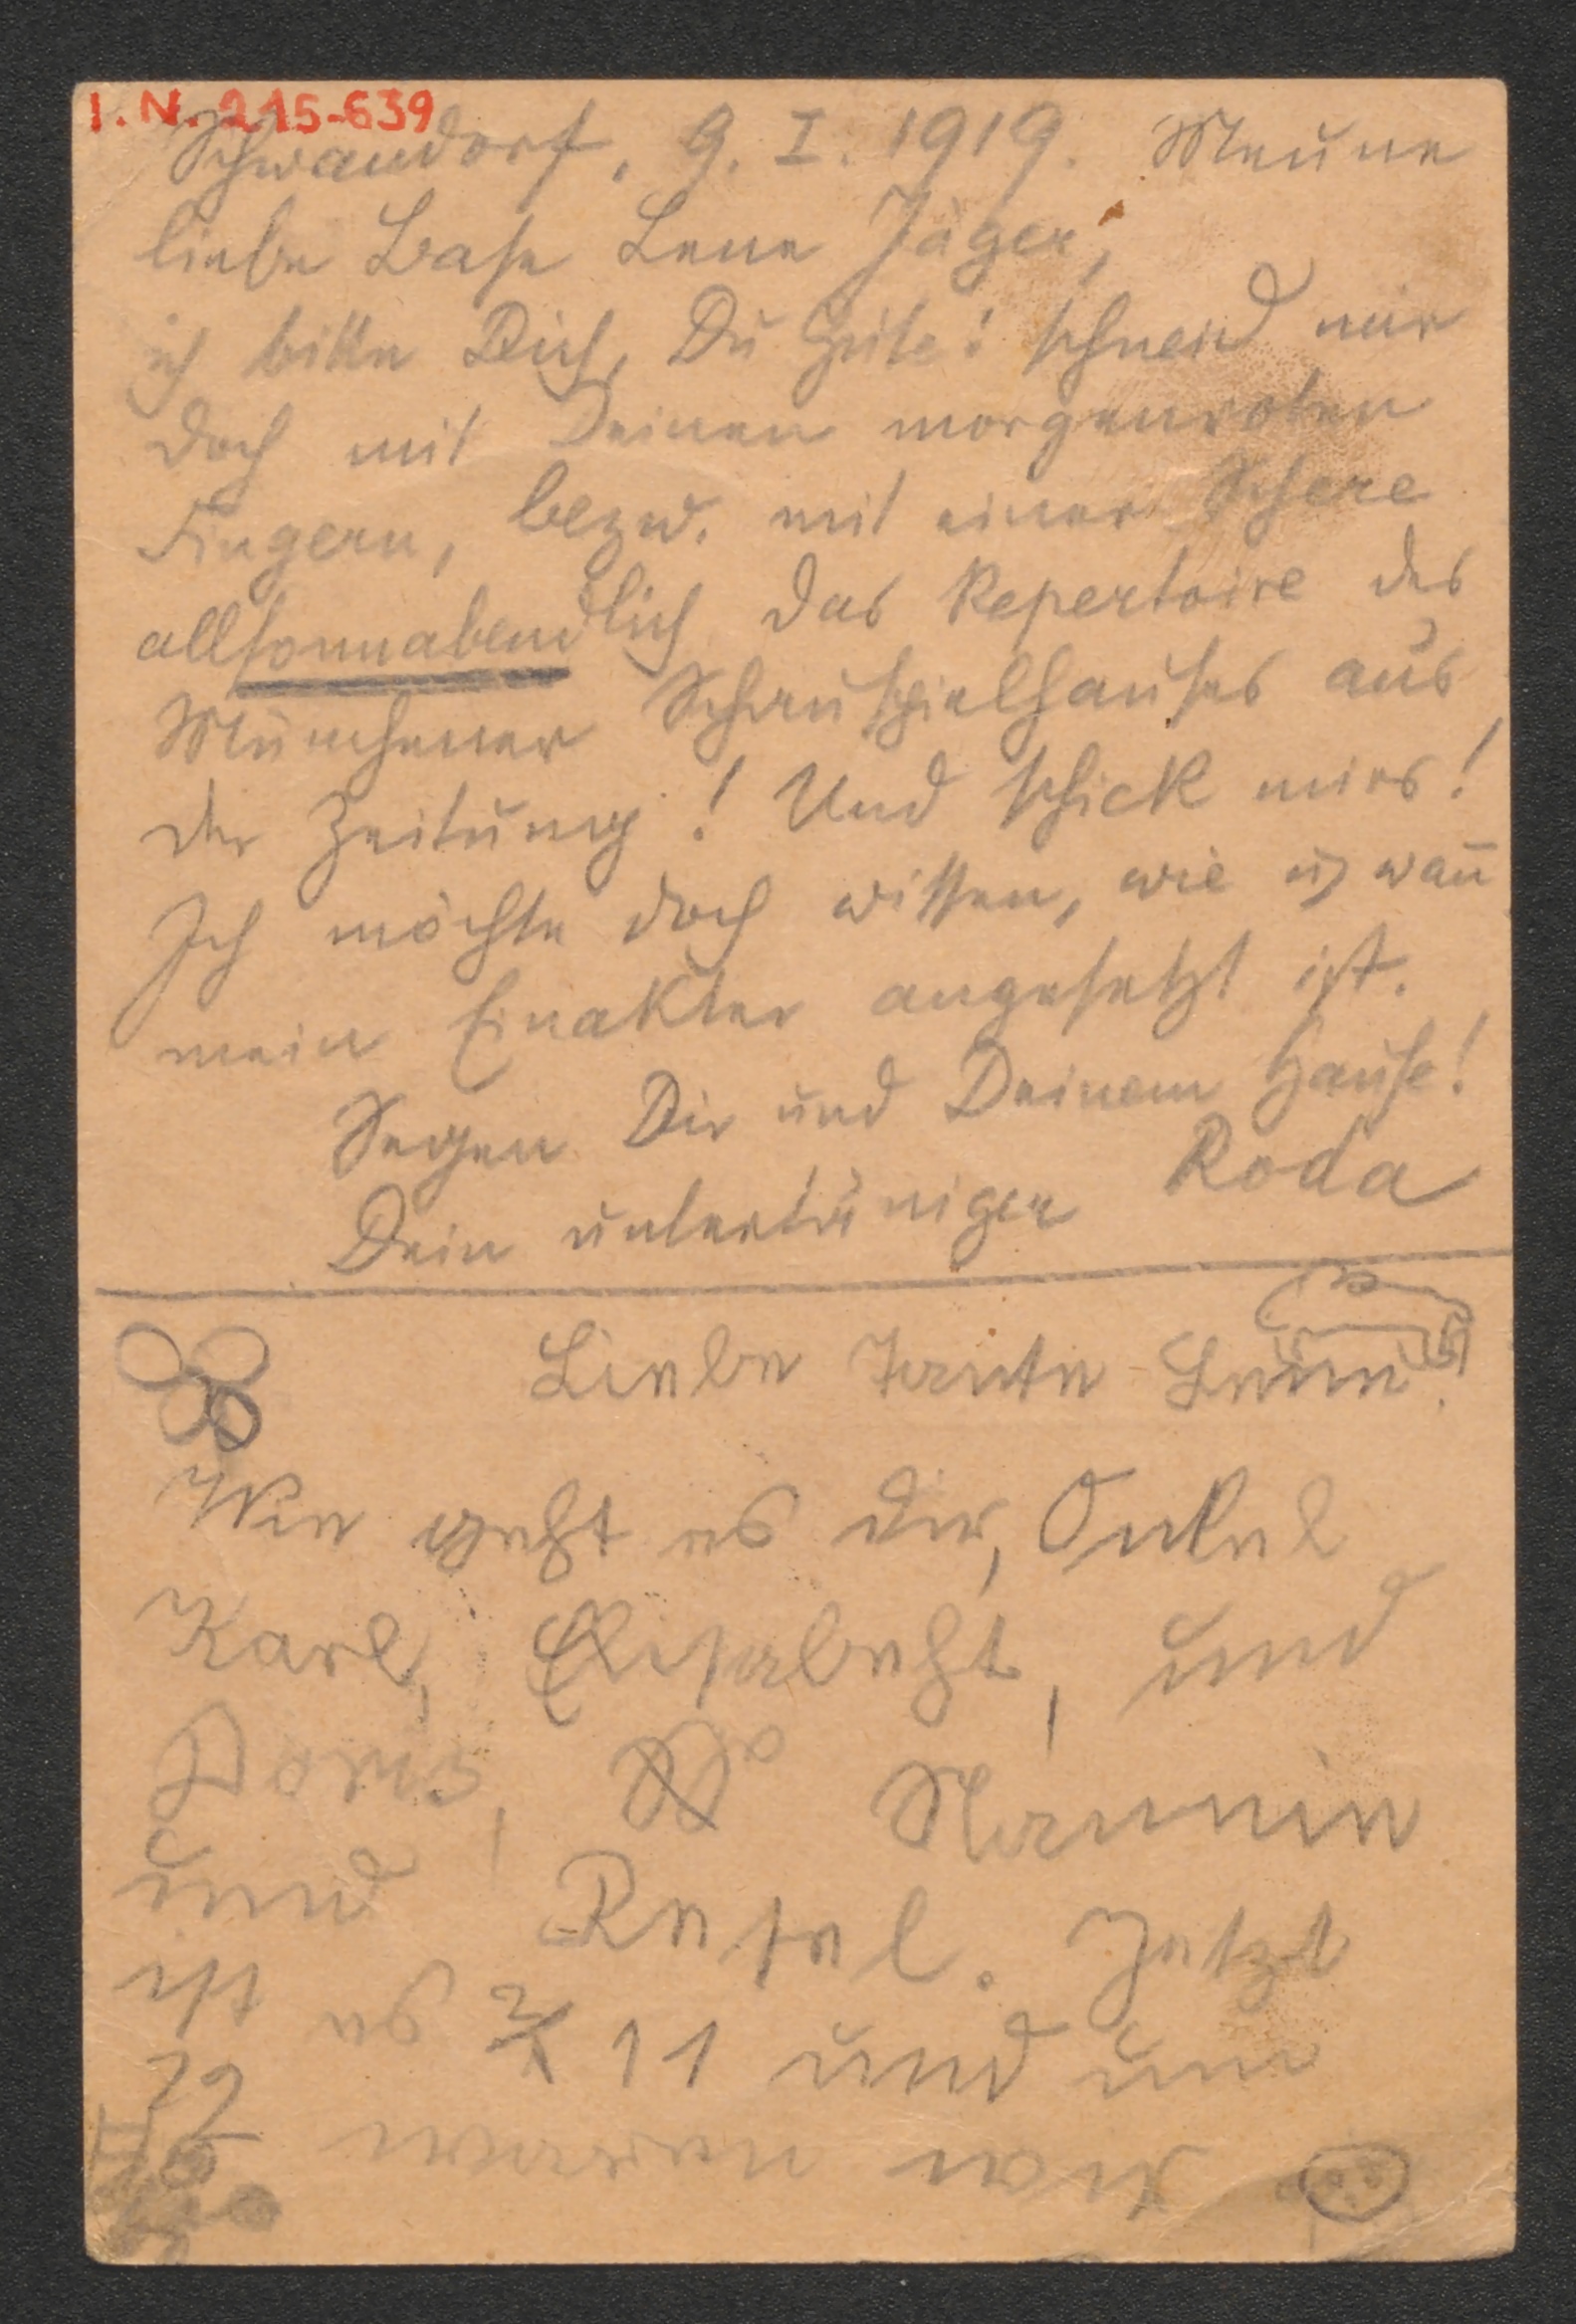 I.N. 215-639
Schwandorf, 9. I. 1919. Meune
liebe Base Lene Jäger,
ich bitte Dich, Du Gute! schneid mir
doch mit Deinen morgenroten
Fingern, bezw. mit einer Schere
allsonnabendlich das Repertoire des
Münchener Schauspielhauses aus
der Zeitung! Und schick mirs!
Ich möchte doch wissen, wie u. wan̄
mein Einakter angesetzt ist.
Segen Dir und Deinem Hause!
Dein untertäniger Roda
Liebe Tante Leni
Wie geht es dir, Onkel
Karl, Elisabeht, und
Doris,
und Resel. Jetzt
ist es 11 und um
12 waren wir